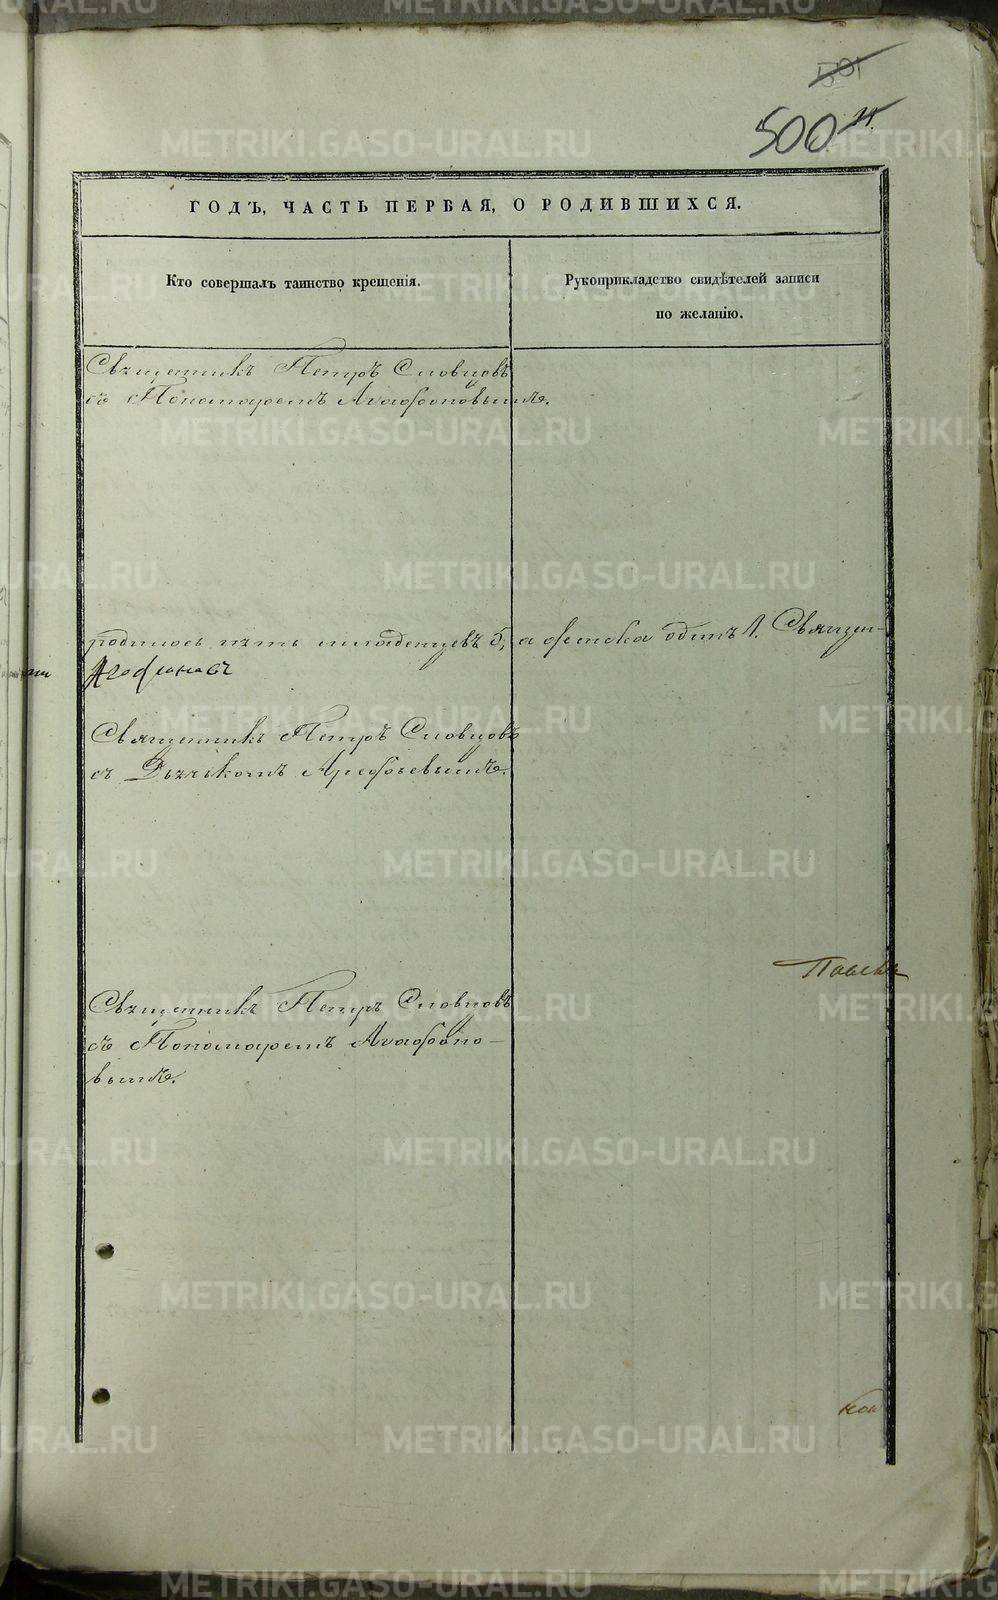 501
500 н
ГОДЪ, ЧАСТЬ ПЕРВАЯ, О РОДИВШИХСЯ.
Кто совершалъ таинство крещенія.
Рукоприкладство свидѣтелей записи
по желанію.
Священникъ Петръ Словцовъ
съ Пономаремъ Агафоновымъ.
родилось пять младенцевъ 5, а женска одинъ 1. Священ-
Агафоновъ
Священникъ Петръ Словцовъ
съ Дьячкомъ Арефьевымъ.
Павелъ
Священникъ Петръ Словцовъ
съ Пономаремъ Агафоно-
вымъ.
METRIKI.GASO-URAL.RU